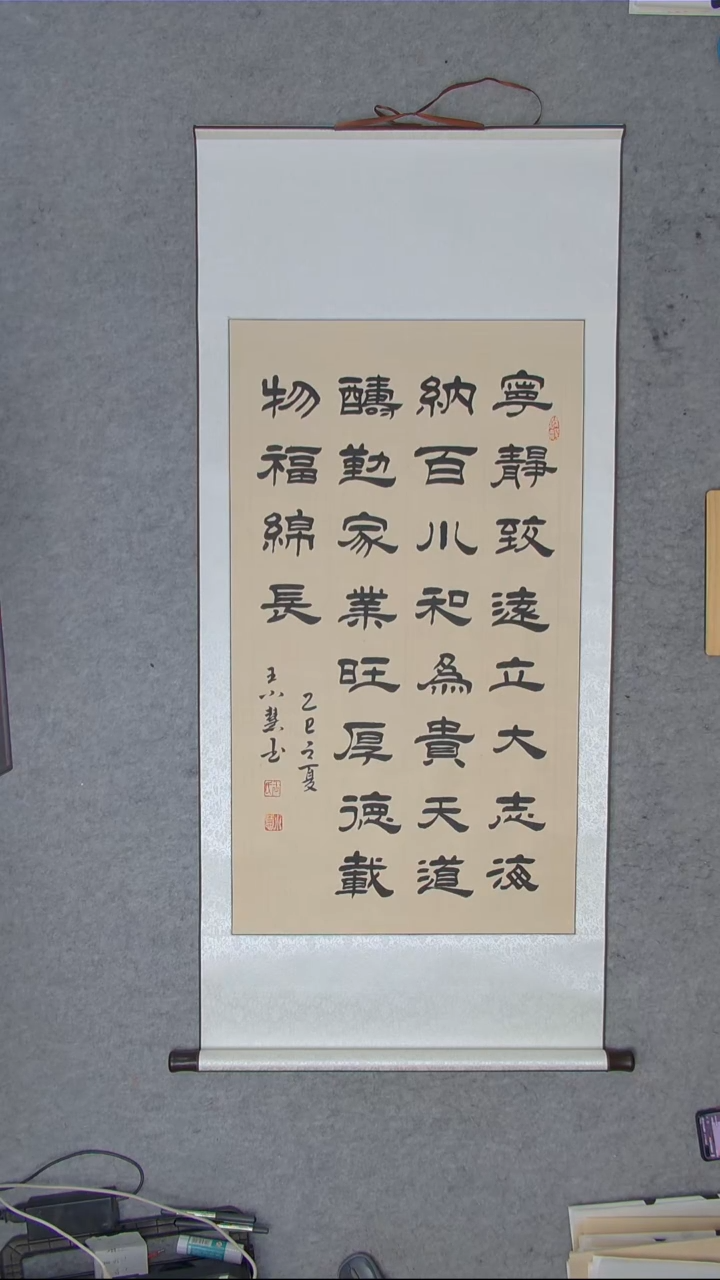 寧靜致遠立大志海
納百川和為貴天道
酬勤家業旺厚德載
物福綿長
乙巳之夏
王小慧書